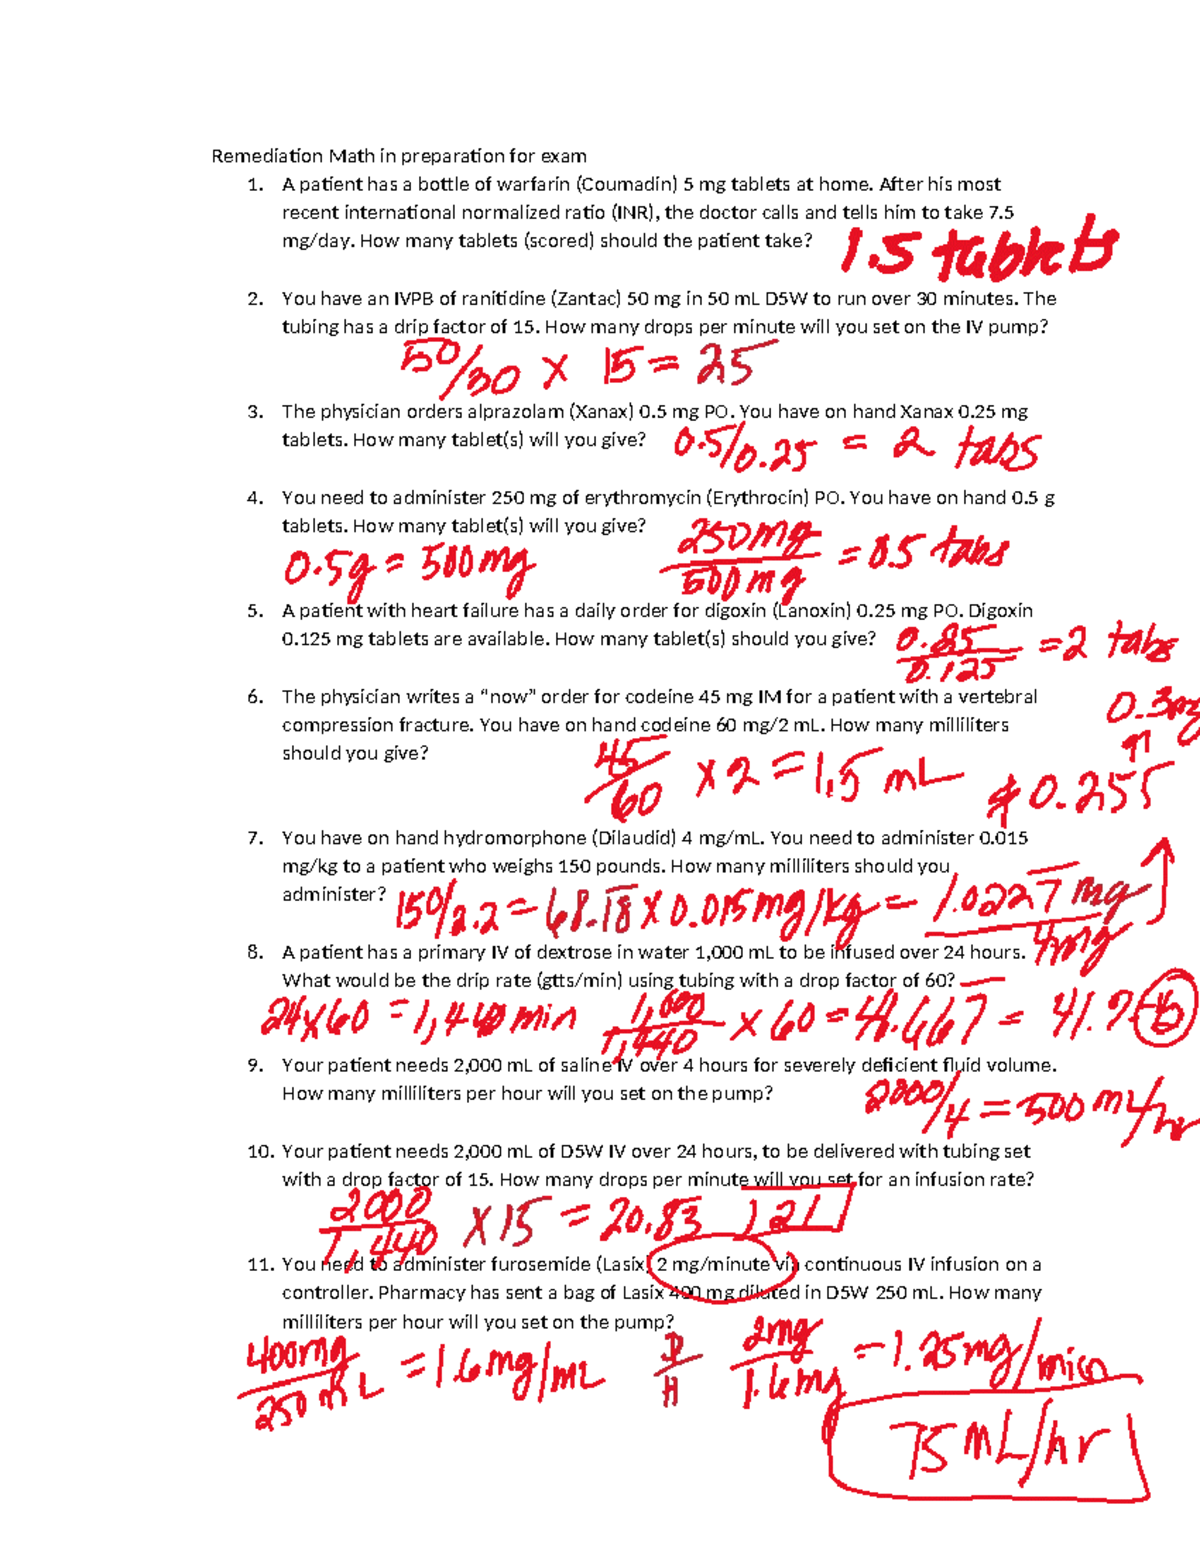 Remediation Math in preparation for exam
1. A patient has a bottle of warfarin (Coumadin) 5 mg tablets at home. After his most
recent international normalized ratio (INR), the doctor calls and tells him to take 7.5
mg/day. How many tablets (scored) should the patient take?
1.5 tablets
2. You have an IVPB of ranitidine (Zantac) 50 mg in 50 mL D5W to run over 30 minutes. The
tubing has a drip factor of 15. How many drops per minute will you set on the IV pump?
50/30 x 15 = 25
3. The physician orders alprazolam (Xanax) 0.5 mg PO. You have on hand Xanax 0.25 mg
tablets. How many tablet(s) will you give?
0.5/0.25 = 2 tabs
4. You need to administer 250 mg of erythromycin (Erythrocin) PO. You have on hand 0.5 g
tablets. How many tablet(s) will you give?
250mg
0.5g = 500mg
= 0.5 tabs
500mg
5. A patient with heart failure has a daily order for digoxin (Lanoxin) 0.25 mg PO. Digoxin
0.125 mg tablets are available. How many tablet(s) should you give?
0.25
= 2 tabs
0.125
6. The physician writes a “now” order for codeine 45 mg IM for a patient with a vertebral
0.3mg
compression fracture. You have on hand codeine 60 mg/2 mL. How many milliliters
should you give?
45
x 2 = 1.5 mL
60
0.255
7. You have on hand hydromorphone (Dilaudid) 4 mg/mL. You need to administer 0.015
mg/kg to a patient who weighs 150 pounds. How many milliliters should you
administer?
150/2.2 = 68.18 x 0.015mg/kg = 1.0227 mg
4mg
8. A patient has a primary IV of dextrose in water 1,000 mL to be infused over 24 hours.
What would be the drip rate (gtts/min) using tubing with a drop factor of 60?
24x60 = 1,440 min
1,000
x 60 = 41.667 = 41.7
1,440
9. Your patient needs 2,000 mL of saline IV over 4 hours for severely deficient fluid volume.
How many milliliters per hour will you set on the pump?
2000/4 = 500 mL/hr
10. Your patient needs 2,000 mL of D5W IV over 24 hours, to be delivered with tubing set
with a drop factor of 15. How many drops per minute will you set for an infusion rate?
2000
x 15 = 20.83
21
1,440
11. You need to administer furosemide (Lasix) 2 mg/minute via continuous IV infusion on a
controller. Pharmacy has sent a bag of Lasix 400 mg diluted in D5W 250 mL. How many
milliliters per hour will you set on the pump?
400mg
= 1.6mg/mL
250mL
D
H
2mg
= 1.25mg/min
1.6mg
75mL/hr